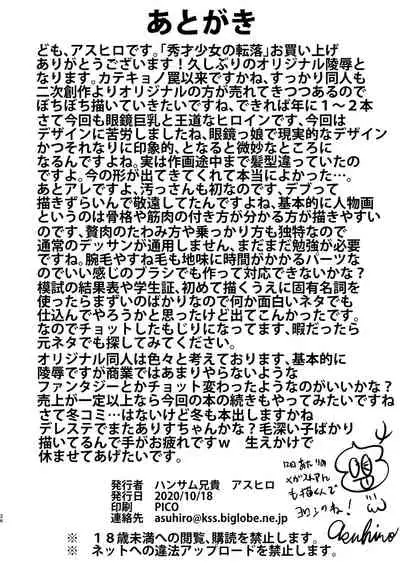 あとがき
ども、アスヒロです。「秀才少女の転落」お買い上げ
ありがとうございます！久しぶりのオリジナル陵辱と
なります。カテキョノ罠以来ですかね、すっかり同人も
二次創作よりオリジナルの方が売れてきつつあるので
ぼちぼち描いていきたいですね、できれば年に１～２本
さて今回も眼鏡巨乳と王道なヒロインです、今回は
デザインに苦労しましたね、眼鏡っ娘で現実的なデザイン
かつそれなりに印象的、となると微妙なところに
なるんですよね。実は作画途中まで髪型違っていたの
ですよ。今の形が出てきてくれて本当によかった…。
あとアレですよ、汚っさんも初なのです、デブって
描きずらいんで敬遠してたんですよね、基本的に人物画
というのは骨格や筋肉の付き方が分かる方が描きやすい
のです、贅肉のたわみ方や乗っかり方も独特なので
通常のデッサンが通用しません、まだまだ勉強が必要
ですね。腕毛やすね毛も地味に時間がかかるパーツな
のでいい感じのブラシでも作って対応できないかな？
模試の結果表や学生証、初めて描くうえに固有名詞を
使ったらまずいのばかりなので何か面白いネタでも
仕込んでやろうかと思ったけど出てこんかったです。
なのでチョットしたもじりになってます、暇だったら
元ネタでも探してみてください。
オリジナル同人は色々と考えております、基本的に
陵辱ですが商業ではあまりやらないような
ファンタジーとかチョット変わったようなのがいいかな？
売上が一定以上なら今回の本の続きもやってみたいですね
さて冬コミ…はないけど冬も本出しますかね
デレステでまたありすちゃんかな？毛深い子ばかり
描いてるんで手がお疲れですｗ　生えかけで
休ませてあげたいです。
発行者　ハンサム兄貴　アスヒロ
発行日　2020/10/18
印刷　PICO
連絡先　asuhiro@kss.biglobe.ne.jp
asuhiro
※　１８歳未満への閲覧、購読を禁止します。　※
※　ネットへの違法アップロードを禁止します。　※